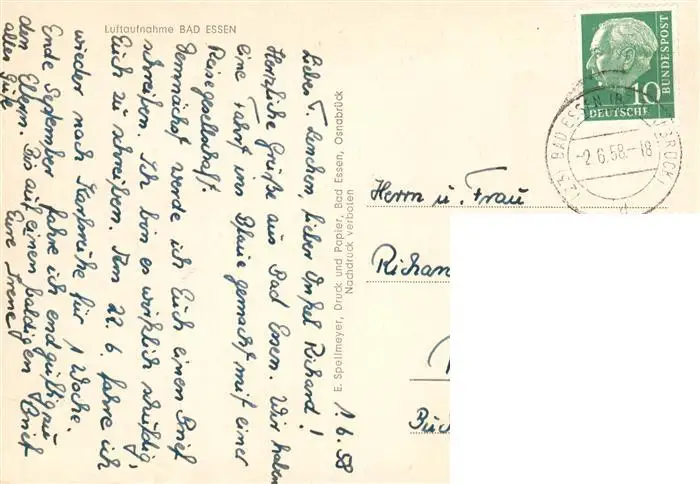 Luftaufnahme BAD ESSEN
1.6.58
Liebe T. Lenchen, lieber Onkel Richard!
Herzliche Grüße aus Bad Essen. Wir haben
eine Fahrt ins Blaue gemacht mit einer
Reisegesellschaft.
Demnächst werde ich Euch einen Brief
schreiben. Ich bin es wirklich schuldig,
Euch zu schreiben. Am 22.6. fahre ich
wieder nach Karlsruhe für 1 Woche.
Ende September fahre ich endgültig zu
den Eltern. Bis auf einen baldigen Brief
alles Gute
Eure Irene
E. Spellmeyer, Druck und Papier, Bad Essen, Osnabrück
Nachdruck verboten
10
DEUTSCHE
BUNDESPOST
(23) BAD ESSEN
-2.6.58.-18
d
Herrn u. Frau
Richar